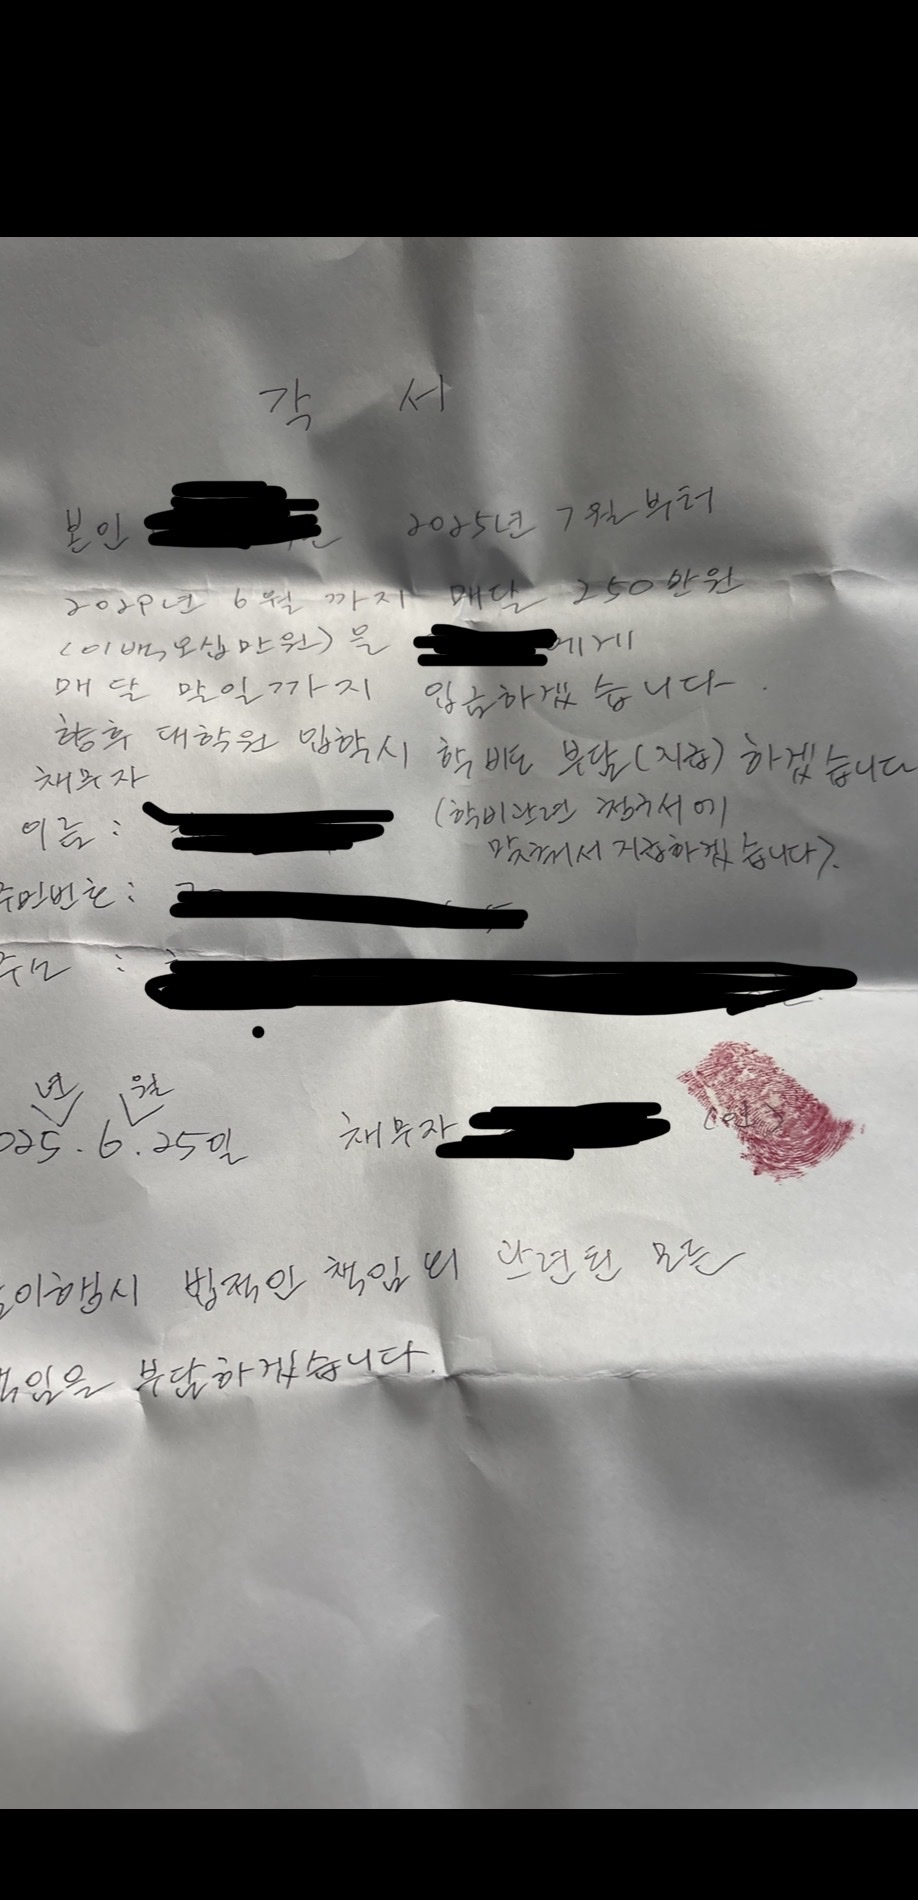 각 서
본인 2025년 7월부터
2029년 6월 까지 매달 250만원
(이백오십만원)을 에게
매달 말일까지 입금하겠습니다.
향후 대학원 입학시 학비도 부담(지급)하겠습니다
채무자
이름: (학비관련 청구서에
맞춰서 지급하겠습니다).
주민번호:
주소 :
년 월
2025.6.25일 채무자 (인)
불이행시 법적인 책임 외 관련된 모든
책임을 부담하겠습니다.